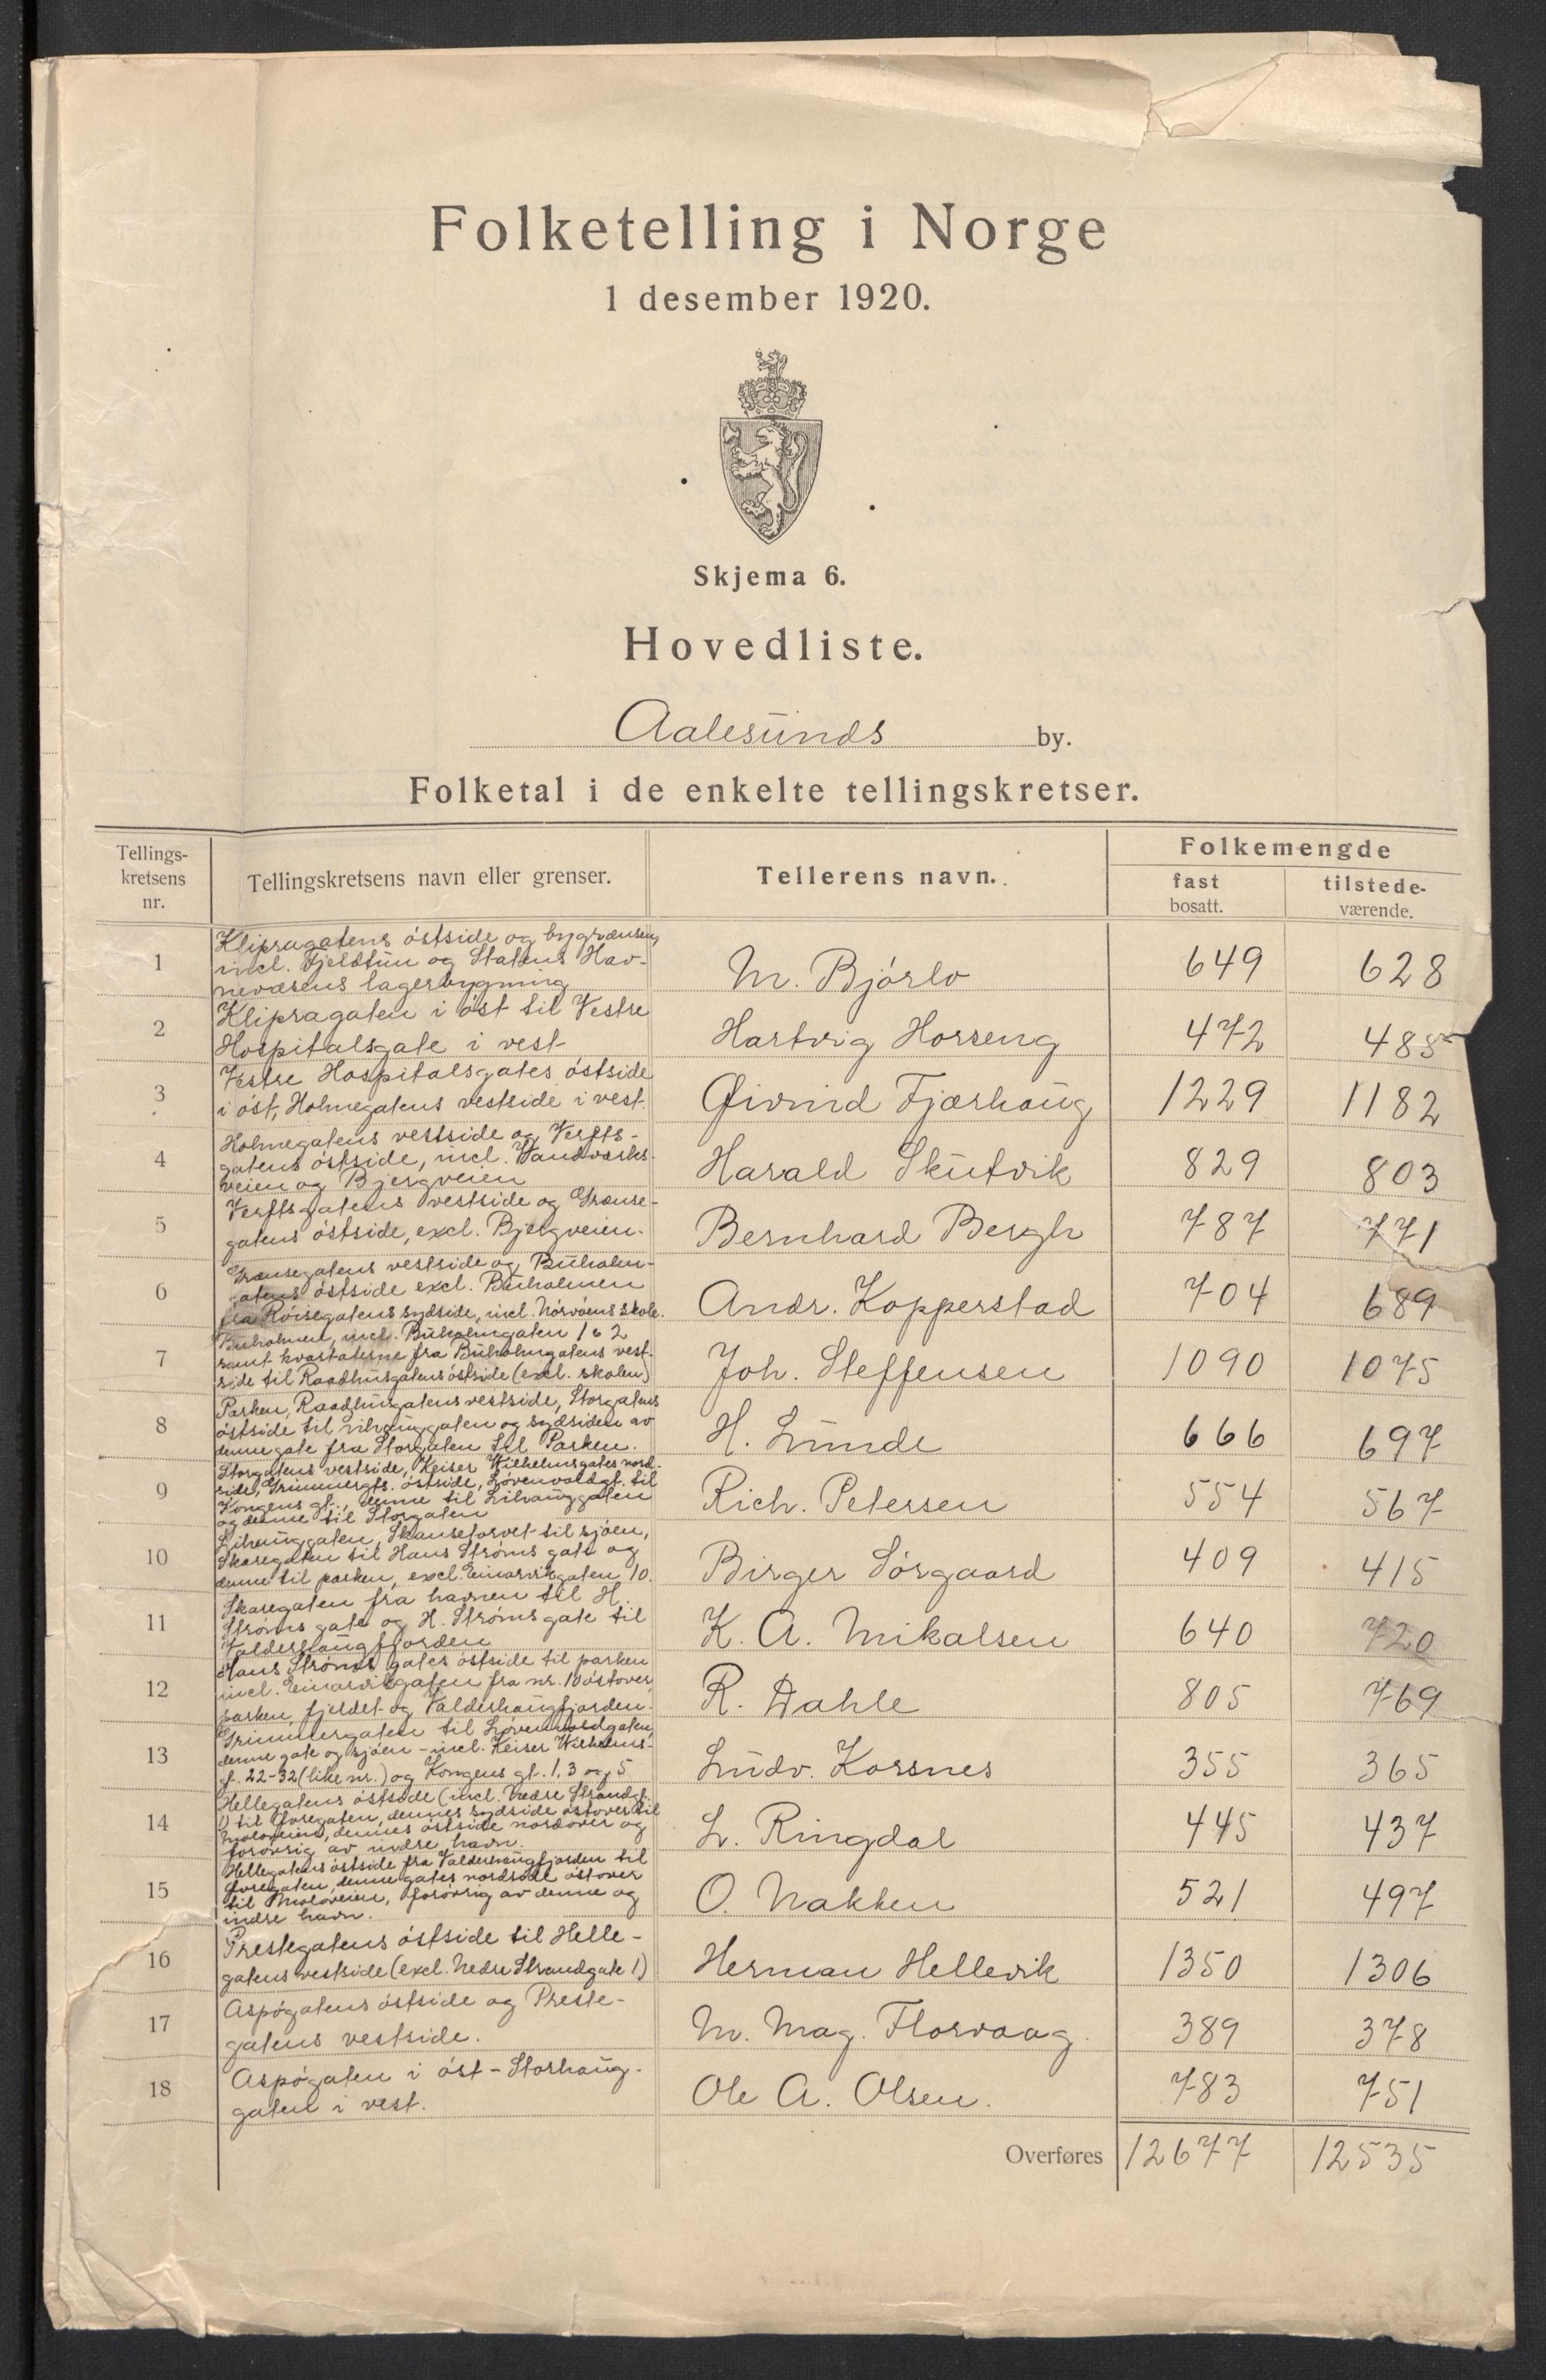 Folketelling i Norge
1 desember 1920.
Skjema 6.
Hovedliste.
Aalesunds by.
Folketal i de enkelte tellingskretser.
Tellings-
kretsens
nr.
Tellingskretsens navn eller grenser.
Tellerens navn.
Folkemengde
fast
bosatt.
tilstede-
værende.
1
Klipragatens østside og bygrænsen,
incl. Fjeldtun og Statens Hav-
nevæsens lagerbygning
M. Bjørlo
649
628
2
Klipragaten i øst til Vestre
Hospitalsgate i vest
Hartvig Horseng
472
485
3
Vestre Hospitalsgates østside
i øst, Holmegatens vestside i vest.
Øivind Fjærhaug
1229
1182
4
Holmegatens vestside og Verfts-
gatens østside, incl. Vandverks-
veien og Bjergveien
Harald Skutvik
829
803
5
Verftsgatens vestside og Grænse-
gatens østside, excl. Bjergveien.
Bernhard Bergh
787
771
6
Grænsegatens vestside og Buholm-
gatens østside excl. Buholmen
fra Røisegatens sydside, incl. Nørvøens skole.
Andr. Kopperstad
704
689
7
Buholmen, incl. Buholmgaten 1 & 2
samt kvartalerne fra Buholmgatens vest-
side til Raadhusgatens østside (excl. skolen)
Joh. Steffensen
1090
1075
8
Parken, Raadhusgatens vestside, Storgatens
østside til Lihauggaten og sydsiden av
denne gate fra Storgaten til Parken.
H. Lunde
666
697
9
Storgatens vestside, Keiser Wilhelmsgates nord-
side, Grimmergts. østside, Løvenvoldgt. til
Kongens gt., denne til Lihauggaten
og denne til Storgaten
Rich. Petersen
554
567
10
Lihauggaten, Skansetorvet til sjøen,
Skaregaten til Hans Strøms gate og
denne til parken, excl. Einarvikgaten 10.
Birger Sørgaard
409
415
11
Skaregaten fra havnen til H.
Strøms gate og H. Strøms gate til
Valderhaugfjorden
K. A. Mikalsen
640
720
12
Hans Strøms gates østside til parken
incl. Einarvikgaten fra nr. 10 østover,
parken, fjeldet og Valderhaugfjorden.
R. Dahle
805
769
13
Grimmergaten til Løvenvoldgaten,
denne gate og sjøen - incl. Keiser Wilhelms-
gt. 22-32 (like nr.) og Kongens gt. 1, 3 og 5
Ludv. Korsnes
355
365
14
Hellegatens østside (incl. Nedre Strandgt.
1) til Øvregaten, dennes sydside østover til
Moloveien, dennes østside nordover og
forøvrig av indre havn.
L. Ringdal
445
437
15
Hellegatens østside fra Valderhaugfjorden til
Øvregaten, denne gates nordside østover
til Moloveien, forøvrig av denne og
indre havn.
O. Nakken
521
497
16
Prestegatens østside til Helle-
gatens vestside (excl. Nedre Strandgate 1)
Herman Hellevik
1350
1306
17
Aspøgatens østside og Preste-
gatens vestside.
M. Mag. Florvaag.
389
378
18
Aspøgaten i øst - Storhaug-
gaten i vest.
Ole A. Olsen.
783
751
Overføres
12677
12535